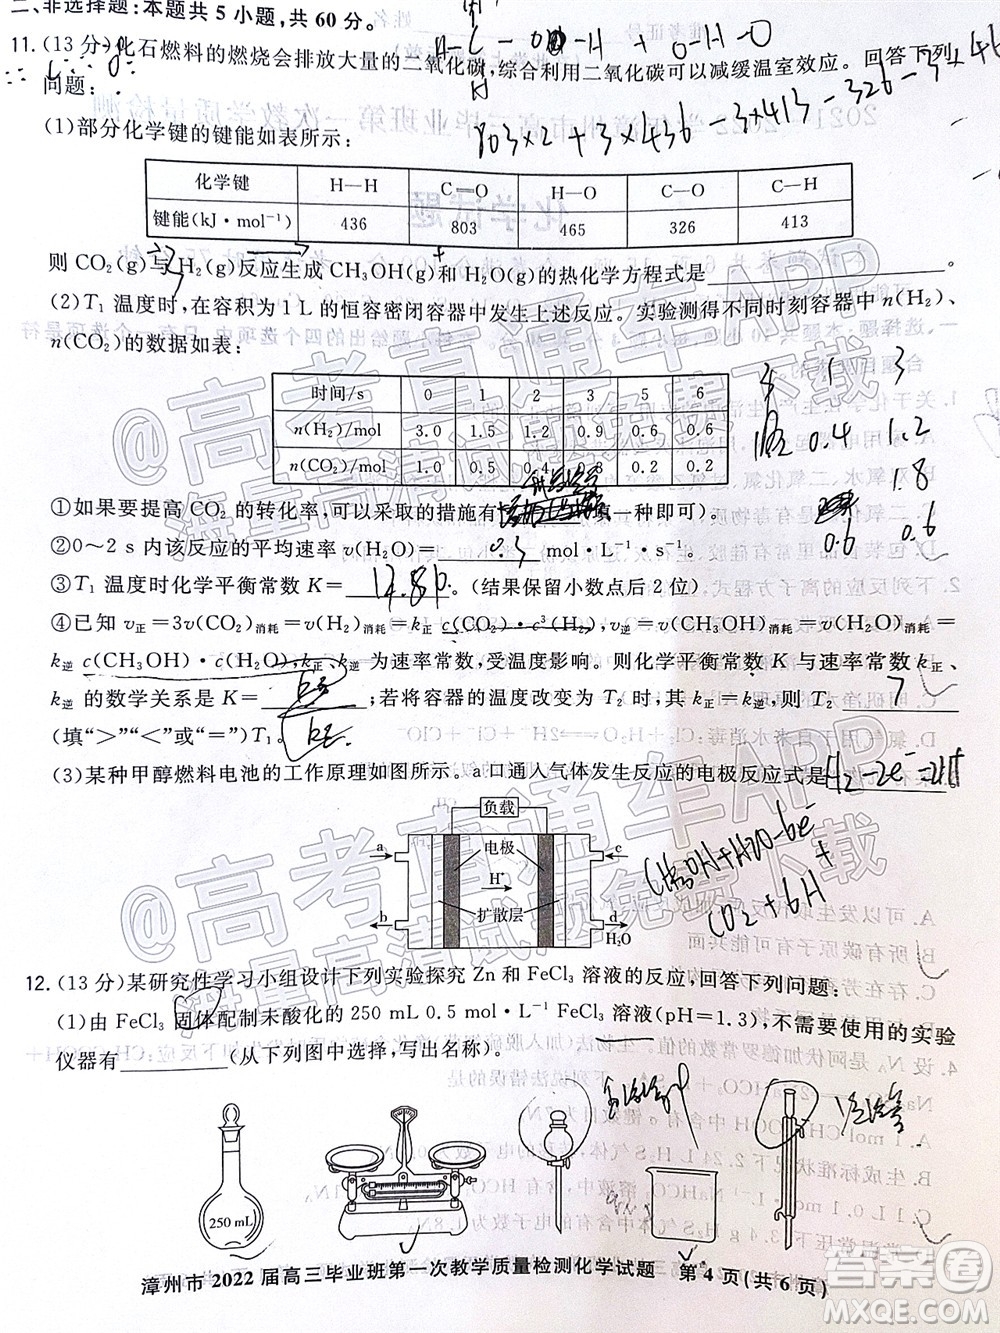 二、非选择题:本题共5小题,共60分。
11.(13分)化石燃料的燃烧会排放大量的二氧化碳,综合利用二氧化碳可以减缓温室效应。回答下列
问题:
(1)部分化学键的键能如表所示:
803×2+3×436-3×413-326-3×46
化学键 H—H C=O H—O C—O C—H
键能(kJ·mol⁻¹) 436 803 465 326 413
则CO₂(g)与H₂(g)反应生成CH₃OH(g)和H₂O(g)的热化学方程式是____。
(2)T₁温度时,在容积为1 L的恒容密闭容器中发生上述反应。实验测得不同时刻容器中n(H₂)、
n(CO₂)的数据如表:
时间/s 0 1 2 3 5 6
n(H₂)/mol 3.0 1.5 1.2 0.9 0.6 0.6
n(CO₂)/mol 1.0 0.5 0.4 0.3 0.2 0.2
1 3
0.4 1.2
1.8
0.6 0.6
①如果要提高CO₂的转化率,可以采取的措施有____(填一种即可)。
②0~2 s内该反应的平均速率v(H₂O)=0.3 mol·L⁻¹·s⁻¹。
③T₁温度时化学平衡常数K=14.81。(结果保留小数点后2位)
④已知v正=3v(CO₂)消耗=v(H₂)消耗=k正c(CO₂)·c³(H₂),v逆=3v(H₂O)消耗=v(CH₃OH)消耗=
k逆c(CH₃OH)·c(H₂O),k正、k逆为速率常数,受温度影响。则化学平衡常数K与速率常数k正、
k逆的数学关系是K=k正/k逆;若将容器的温度改变为T₂时,其k正=k逆,则T₂ >
(填“>”“<”或“=”)T₁。
(3)某种甲醇燃料电池的工作原理如图所示。a口通入气体发生反应的电极反应式是H₂-2e⁻=2H⁺。
负载
a 电极 c
H⁺
b 扩散层 d
H₂O
CH₃OH+H₂O-6e⁻
CO₂+6H⁺
12.(13分)某研究性学习小组设计下列实验探究Zn和FeCl₃溶液的反应,回答下列问题:
(1)由FeCl₃固体配制未酸化的250 mL 0.5 mol·L⁻¹FeCl₃溶液(pH=1.3),不需要使用的实验
仪器有____(从下列图中选择,写出名称)。
250 mL
漳州市2022届高三毕业班第一次教学质量检测化学试题 第4页(共6页)
@高考直通车APP
海量高清试题免费下载
@高考直通车APP
海量高清试题免费下载
答案圈
MXQE.COM